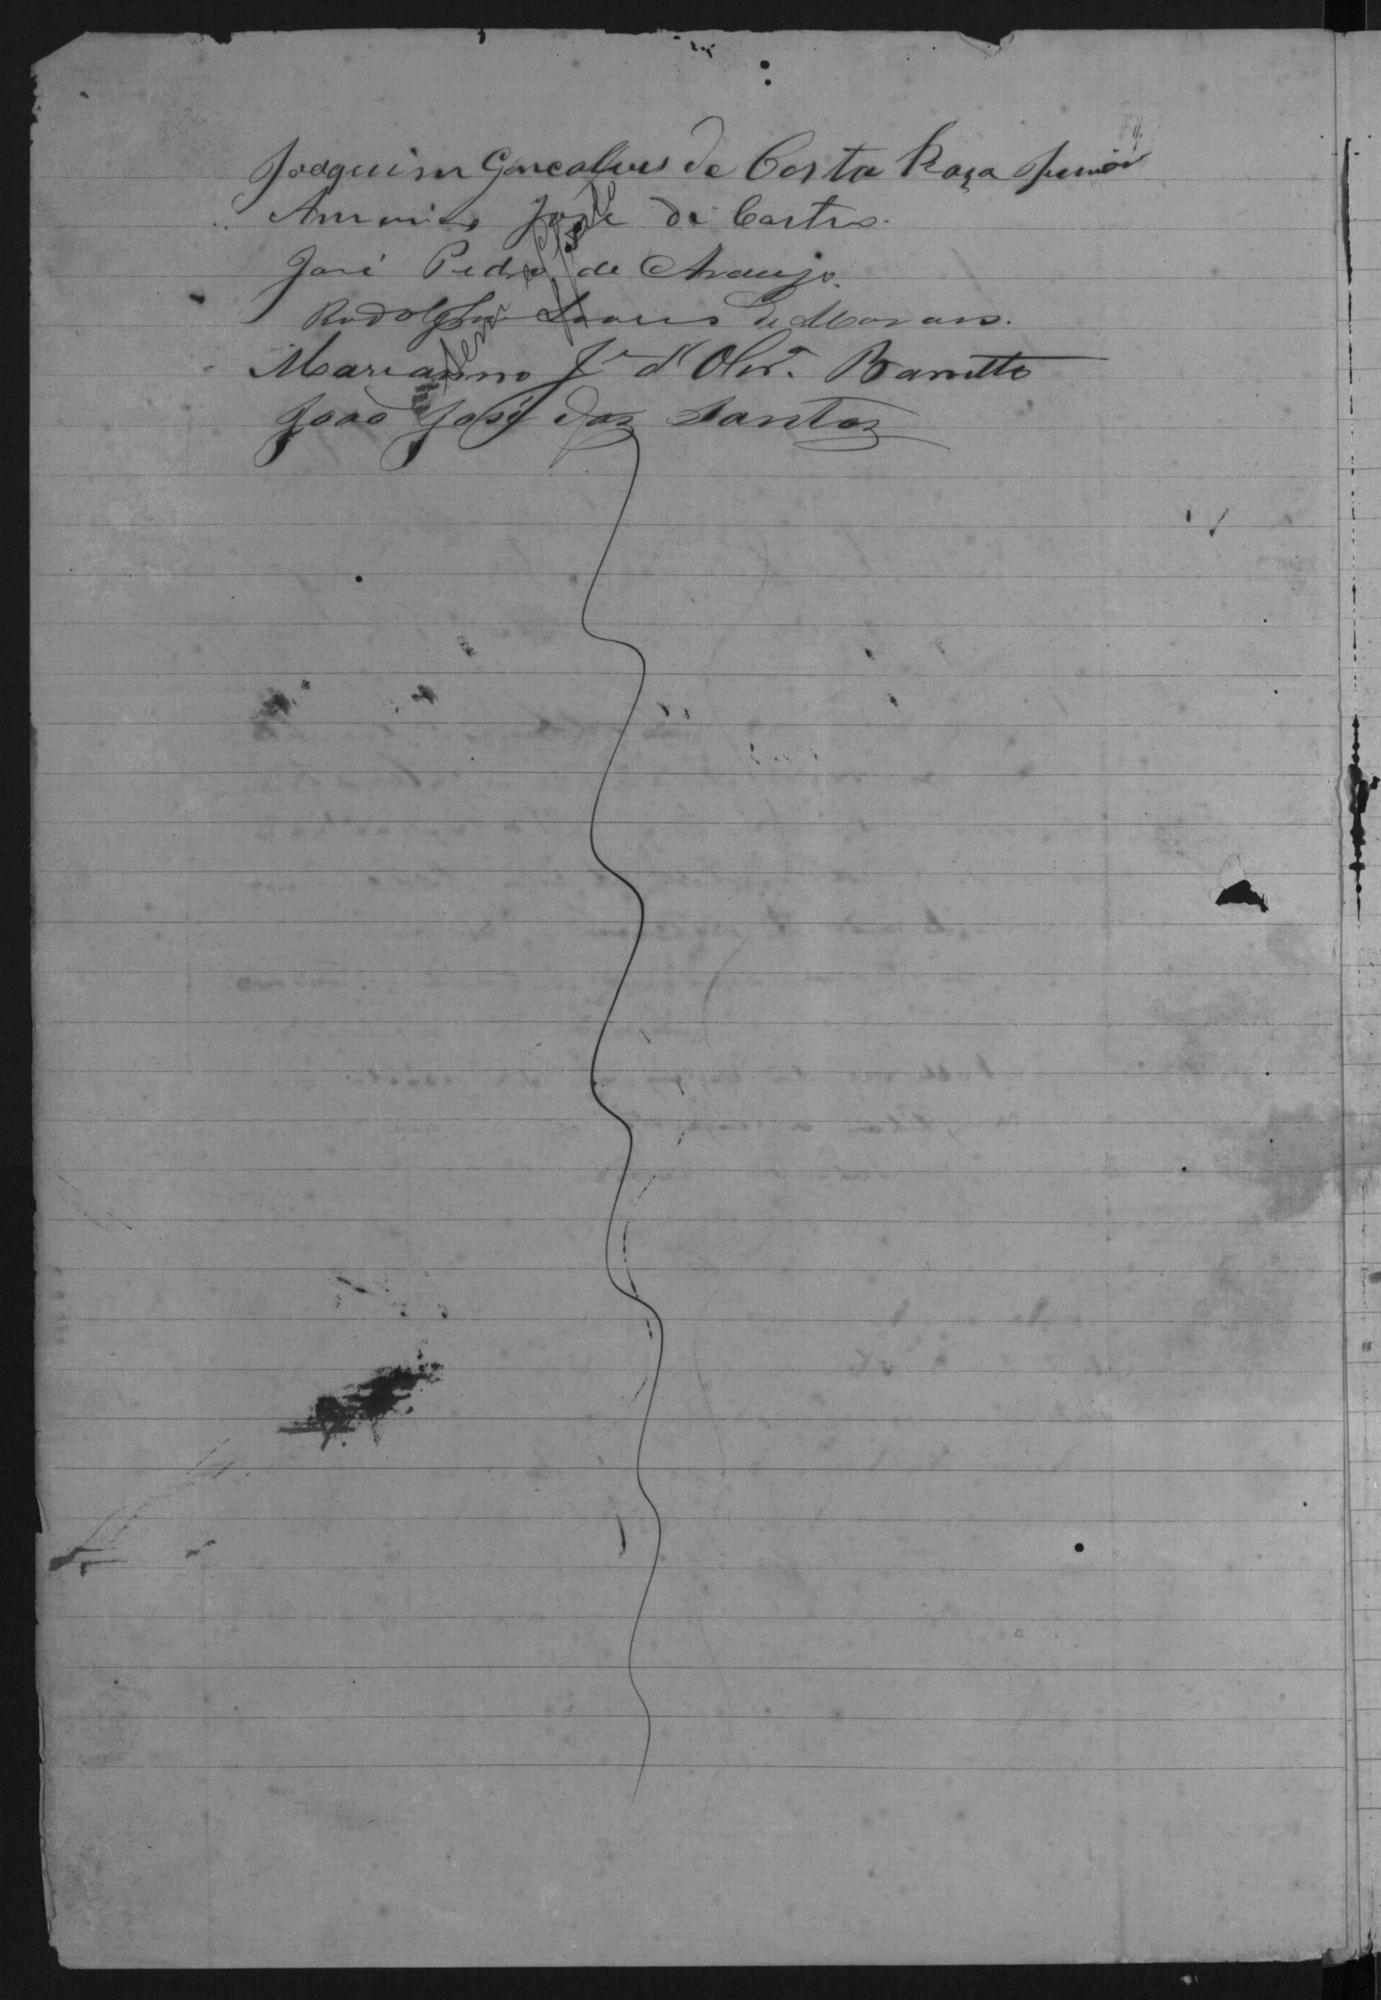 Joaquim Gonçalves da Costa Raza Junior
Antonio José de Castro.
José Pedro de Araujo.
Rodolpho Soares de Moraes.
Marianno Je d'Olivra. Barretto
João José dos Santos